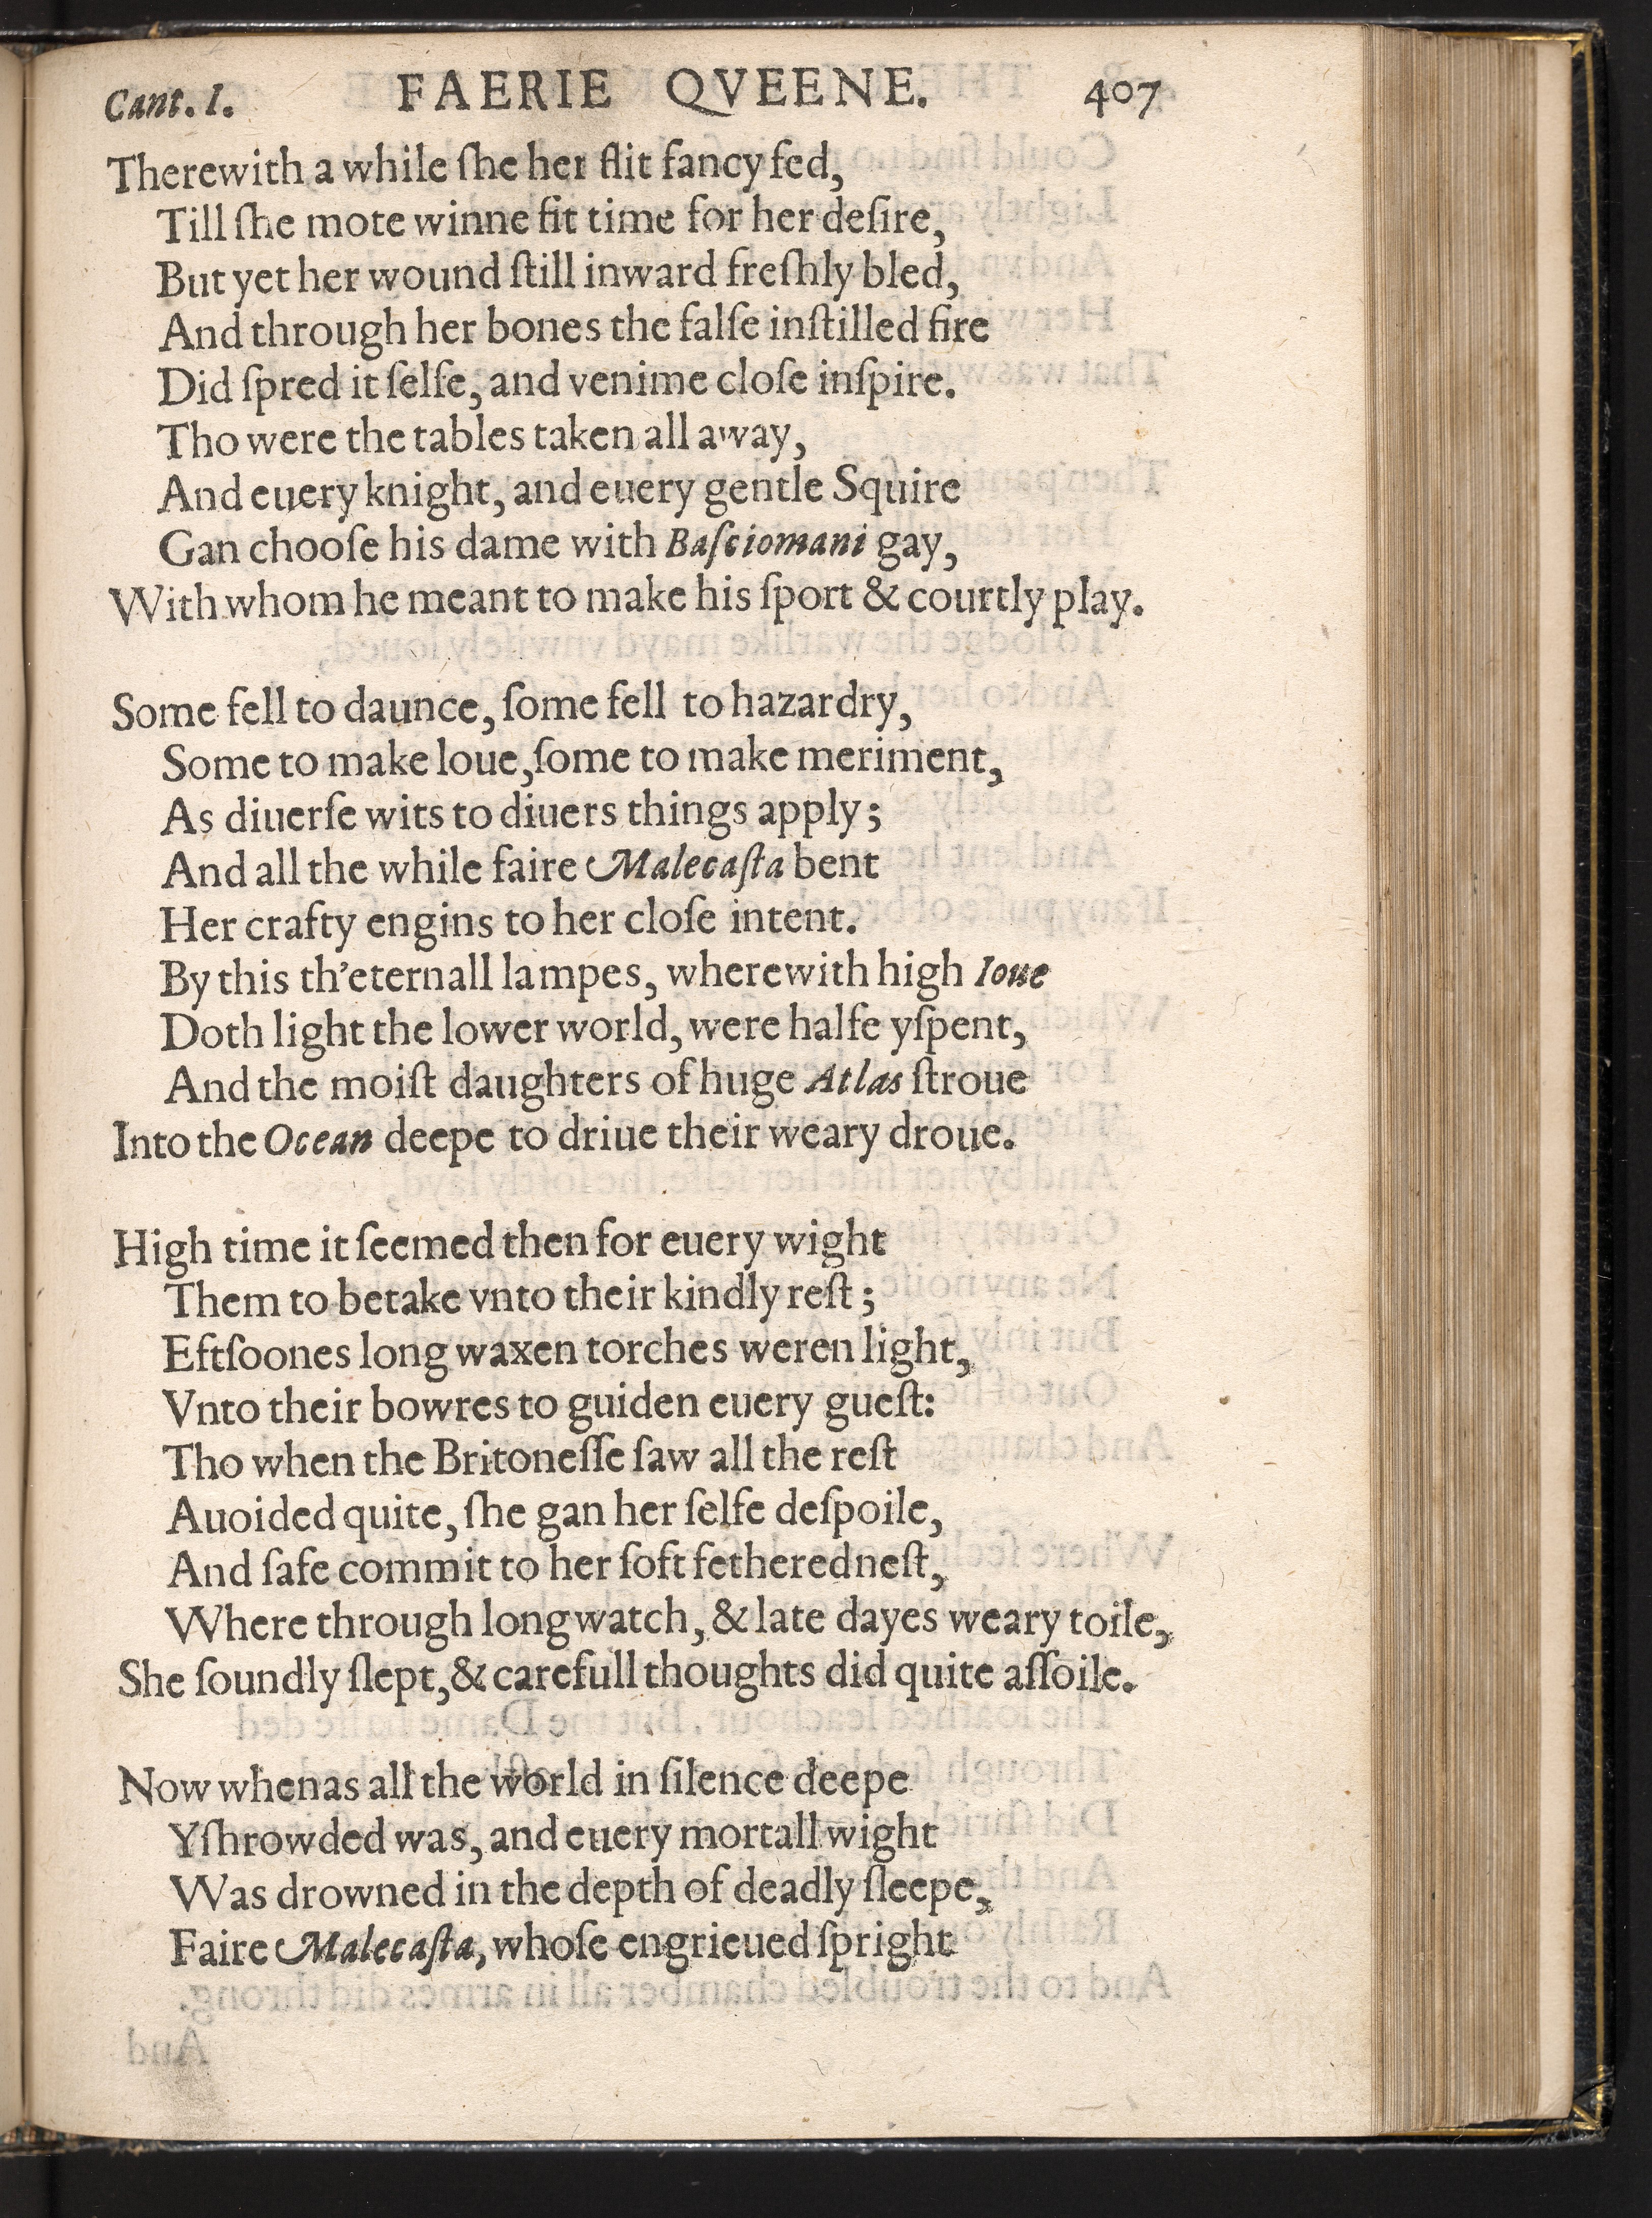 Cant. I. FAERIE QVEENE. 407
Therewith a while ſhe her flit fancy fed,
Till ſhe mote winne fit time for her deſire,
But yet her wound ſtill inward freſhly bled,
And through her bones the falſe inſtilled fire
Did ſpred it ſelfe, and venime cloſe inſpire.
Tho were the tables taken all away,
And euery knight, and euery gentle Squire
Gan chooſe his dame with Baſciomani gay,
With whom he meant to make his ſport & courtly play.
Some fell to daunce, ſome fell to hazardry,
Some to make loue, ſome to make meriment,
As diuerſe wits to diuers things apply;
And all the while faire Malecaſta bent
Her crafty engins to her cloſe intent.
By this th'eternall lampes, wherewith high Ioue
Doth light the lower world, were halfe yſpent,
And the moiſt daughters of huge Atlas ſtroue
Into the Ocean deepe to driue their weary droue.
High time it ſeemed then for euery wight
Them to betake vnto their kindly reſt;
Eftſoones long waxen torches weren light,
Vnto their bowres to guiden euery gueſt:
Tho when the Britoneſſe ſaw all the reſt
Auoided quite, ſhe gan her ſelfe deſpoile,
And ſafe commit to her ſoft fethered neſt,
Where through long watch, & late dayes weary toile,
She ſoundly ſlept, & carefull thoughts did quite aſſoile.
Now whenas all the world in ſilence deepe
Yſhrowded was, and euery mortall wight
Was drowned in the depth of deadly ſleepe,
Faire Malecaſta, whoſe engrieued ſpright